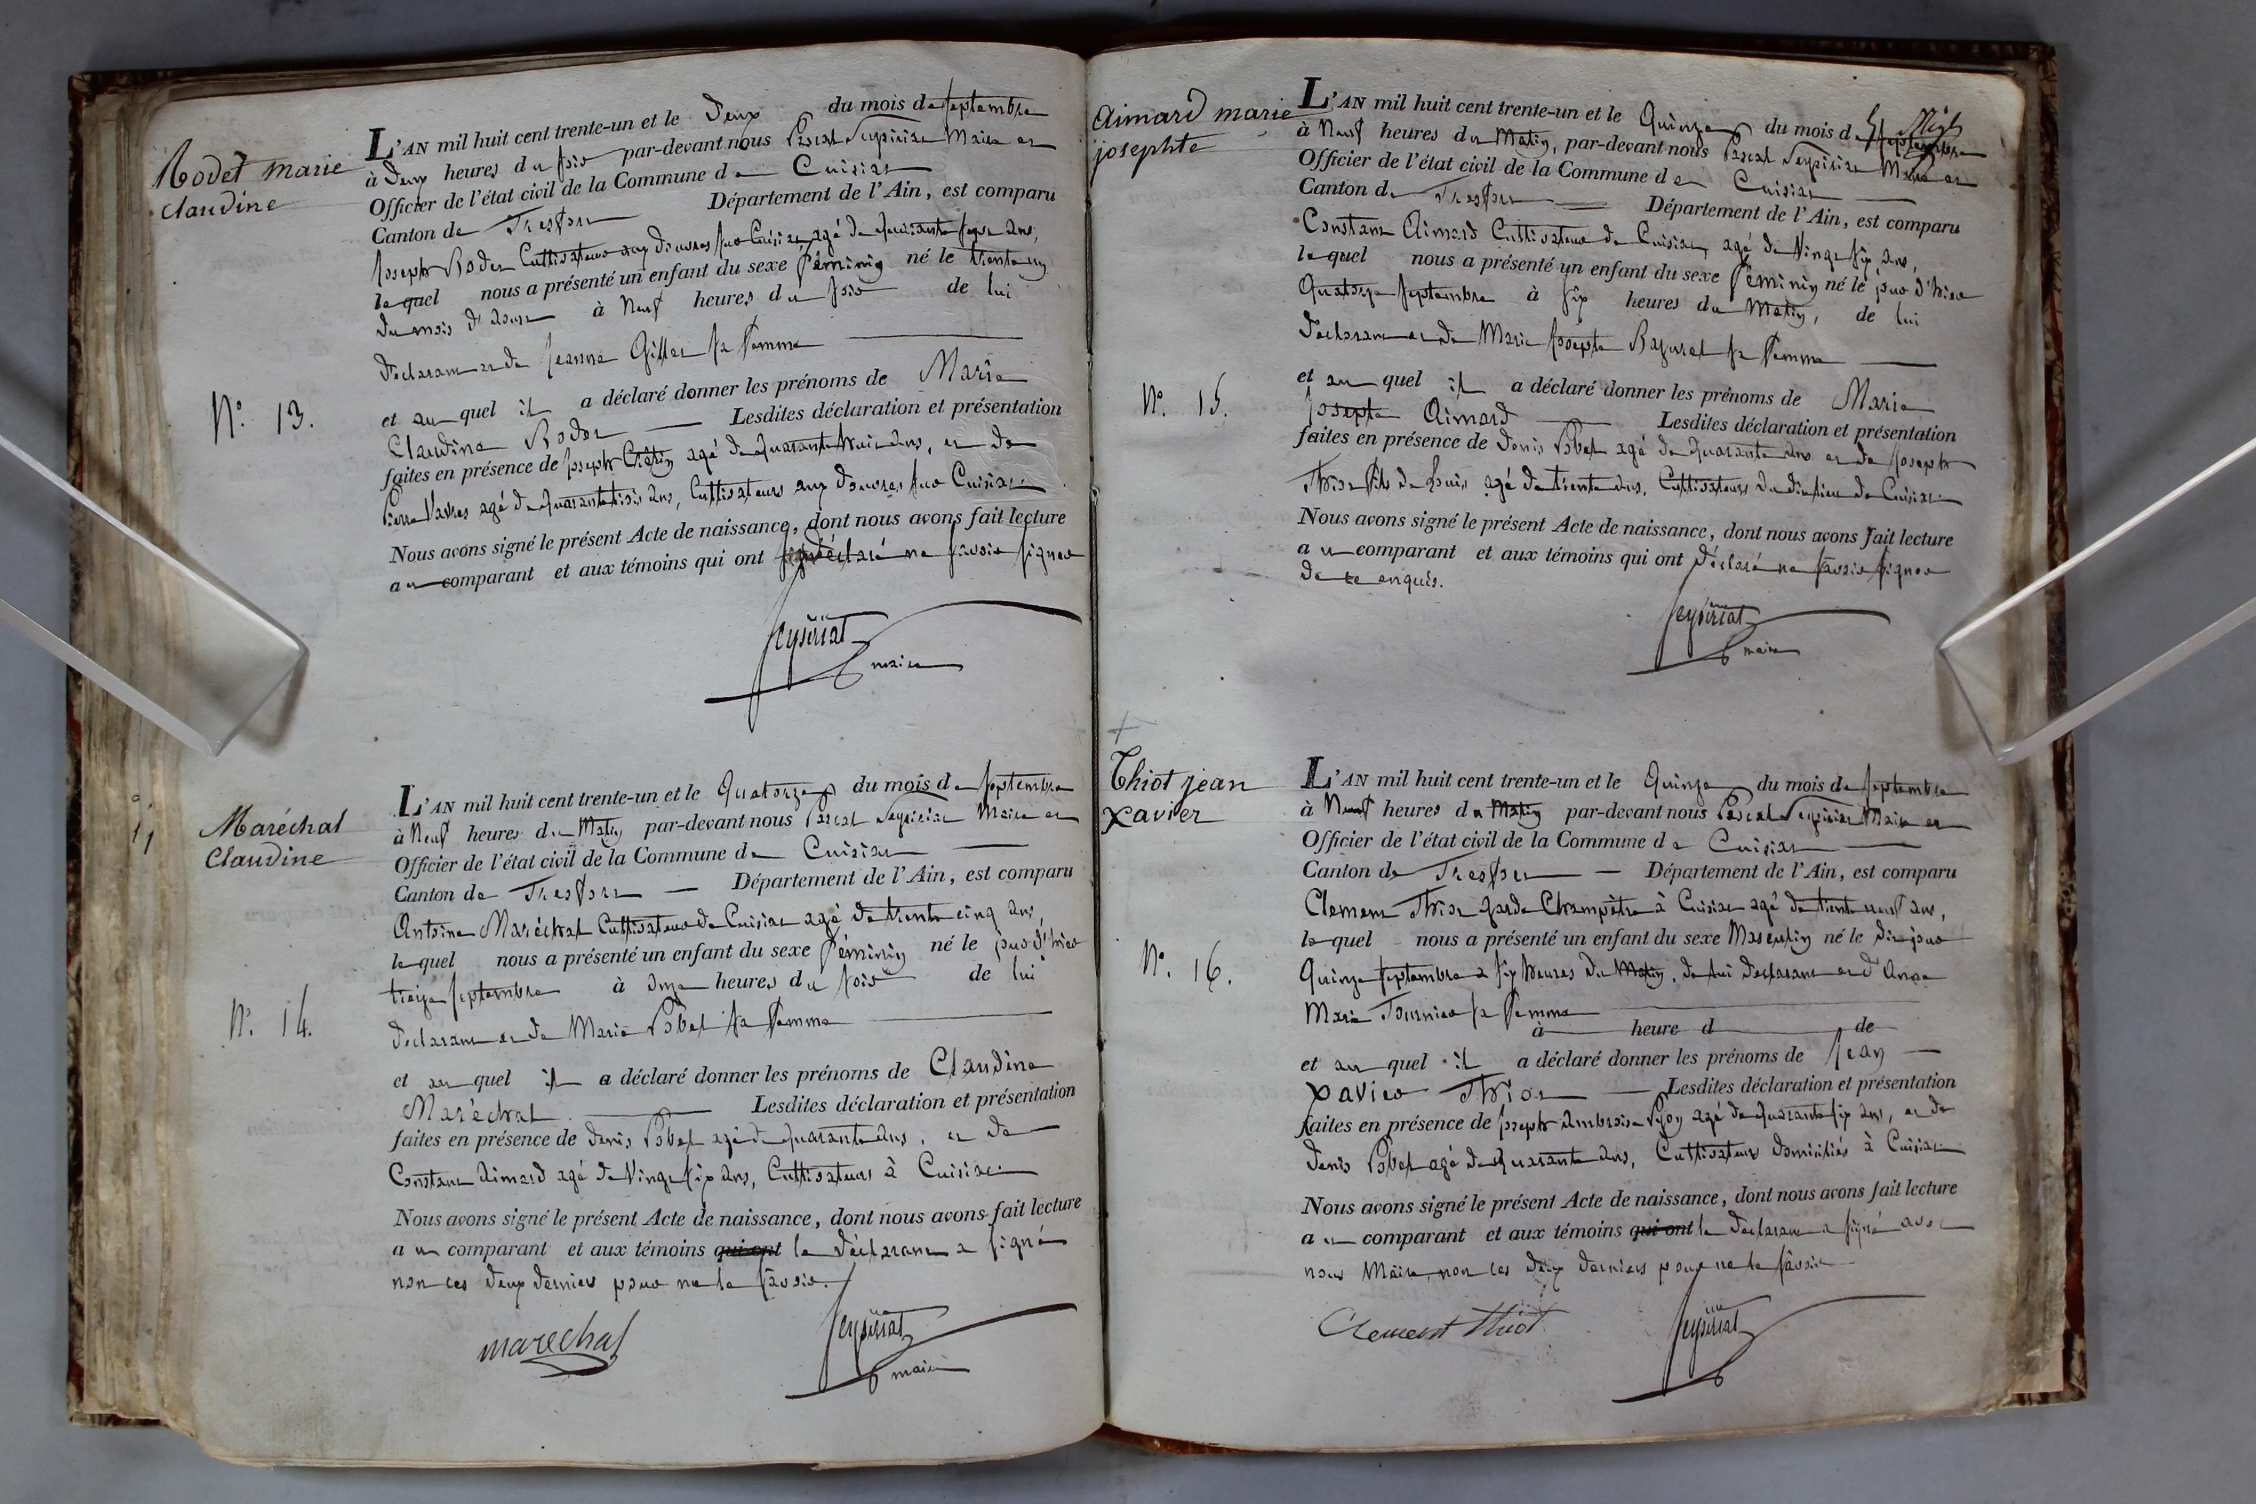 Rodet marie
claudine
N.º 13.
L'AN mil huit cent trente-un et le Deux du mois de septembre
à Deux heures du soir par-devant nous Pascal Seyssiriat Maire et
Officier de l'état civil de la Commune de Cuisiat
Canton de Tresfort Département de l'Ain, est comparu
Joseph Rodet Cultivateur aux douvres sur Cuisiat agé de quarante sept ans,
lequel nous a présenté un enfant du sexe féminin né le trente un
du mois d'aout à Neuf heures du soir de lui
déclarant et de Jeanne Gillet sa femme
et au quel il a déclaré donner les prénoms de Marie
Claudine Rodet Lesdites déclaration et présentation
faites en présence de Joseph agé de quarante huit ans, et de
Pierre Vavres agé de quarante trois ans, Cultivateurs aux douvres sur Cuisiat
Nous avons signé le présent Acte de naissance, dont nous avons fait lecture
au comparant et aux témoins qui ont déclaré ne savoir signer
Seyssiriat
maire
Maréchal
Claudine
N.º 14.
L'AN mil huit cent trente-un et le Quatorze du mois de septembre
à Neuf heures du Matin par-devant nous Pascal Seyssiriat Maire et
Officier de l'état civil de la Commune de Cuisiat
Canton de Tresfort Département de l'Ain, est comparu
Antoine Maréchal Cultivateur de Cuisiat agé de trente cinq ans,
lequel nous a présenté un enfant du sexe féminin né le jour d'hier
treize septembre à onze heures du soir de lui
déclarant et de Marie Pobel sa femme
et au quel il a déclaré donner les prénoms de Claudine
Maréchal Lesdites déclaration et présentation
faites en présence de denis Pobel agé de quarante ans, et de
Constant Aimard agé de Vingt six ans, Cultivateurs à Cuisiat
Nous avons signé le présent Acte de naissance, dont nous avons fait lecture
au comparant et aux témoins qui ont le déclarant a signé
non les deux derniers pour ne le savoir.
marechal
Seyssiriat
maire
Aimard marie
josephte
N.º 15.
L'AN mil huit cent trente-un et le Quinze du mois de septembre
à Neuf heures du Matin, par-devant nous Pascal Seyssiriat Maire et
Officier de l'état civil de la Commune de Cuisiat
Canton de Tresfort Département de l'Ain, est comparu
Constant Aimard Cultivateur de Cuisiat, agé de Vingt six ans,
lequel nous a présenté un enfant du sexe féminin né le jour d'hier
Quatorze septembre à six heures du Matin, de lui
déclarant et de Marie Josephte sa femme
et au quel il a déclaré donner les prénoms de Marie
Josephte Aimard Lesdites déclaration et présentation
faites en présence de Denis Pobel agé de quarante ans et de Joseph
Thiot fils de Louis agé de trente ans, Cultivateurs du dit lieu de Cuisiat
Nous avons signé le présent Acte de naissance, dont nous avons fait lecture
au comparant et aux témoins qui ont déclaré ne savoir signer
de ce enquis.
Seyssiriat
maire
Thiot jean
xavier
N.º 16.
L'AN mil huit cent trente-un et le Quinze du mois de septembre
à Neuf heures du Matin par-devant nous Pascal Seyssiriat Maire et
Officier de l'état civil de la Commune de Cuisiat
Canton de Tresfort Département de l'Ain, est comparu
Clement Thiot garde Champêtre à Cuisiat agé de trente neuf ans,
lequel nous a présenté un enfant du sexe Masculin né le dit jour
Quinze septembre à six heures du Matin, de lui déclarant et d'Anne
Marie Tournier sa femme
à heure d de
et au quel il a déclaré donner les prénoms de Jean
Xavier Thiot Lesdites déclaration et présentation
faites en présence de Joseph Ambroise Pyon agé de quarante six ans, et de
Denis Pobel agé de quarante ans, Cultivateurs domiciliés à Cuisiat
Nous avons signé le présent Acte de naissance, dont nous avons fait lecture
au comparant et aux témoins qui ont le déclarant a signé avec
nous Maire, non les deux derniers pour ne le savoir
Clement thiot
Seyssiriat